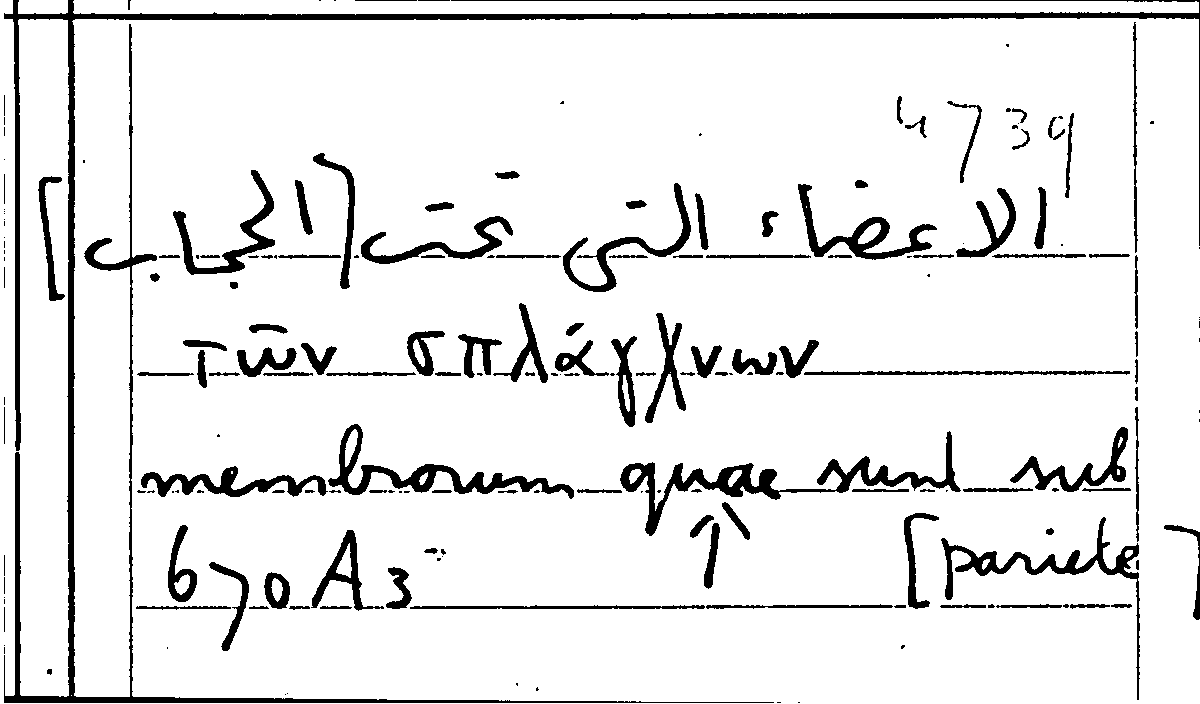 4739
الاعضاء التي تحت [الحجاب]
τῶν σπλάγχνων
membrorum quae sunt sub
↑
670A3 [pariete]